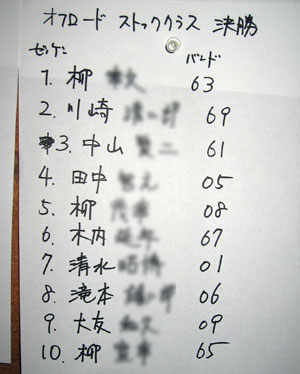 オフロード ストッククラス 決勝
ゼッケン バンド
1. 柳 63
2. 川崎 69
3. 中山 二 61
4. 田中 05
5. 柳 08
6. 木内 67
7. 清水 01
8. 滝本 06
9. 大友 09
10. 柳 65